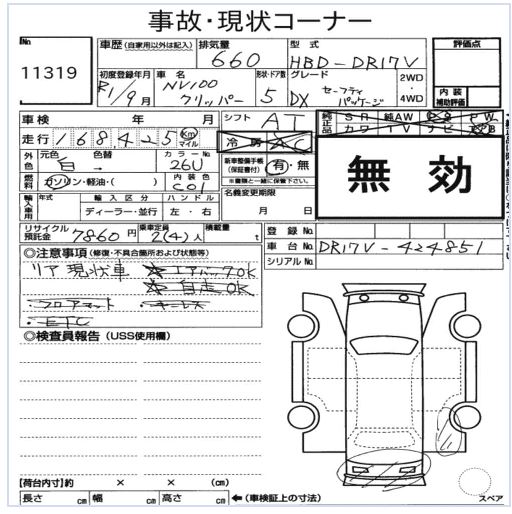 事故・現状コーナー
No.
11319
車歴(自家用以外は記入)
排気量
660
型式
HBD-DR17V
評価点
初度登録年月
R1/9月
車名
NV100
クリッパー
形状・ドア数
5
グレード
DX
セーフティ
パッケージ
2WD
・
4WD
内装
補助評価
車検 年 月
シフト AT
純正品
SR 純AW PS PW
カワ TV ナビ
走行 168,425 Km マイル
冷房 AC
無効
外色
元色 白
色替
カラーNo 26U
新車整備手帳
(保証書付)
有・無
※書類と一緒に保管下さい。
燃料
ガソリン・軽油・( )
内装色 C01
名義変更期限
月 日
輸入車用
年式
輸入区分
ハンドル
ディーラー・並行
左・右
リサイクル
預託金 7860円
乗車定員 2(4)人
積載量 t
登録No.
車台No. DR17V-424851
シリアルNo.
◎注意事項(修復・不具合箇所および状態等)
リア現状車 ☆エアバックOK
☆自走OK
・フロアマット ・キーレス
・ETC
◎検査員報告(USS使用欄)
【荷台内寸】約 × × (cm)
長さ cm 幅 cm 高さ cm ←(車検証上の寸法)
スペア